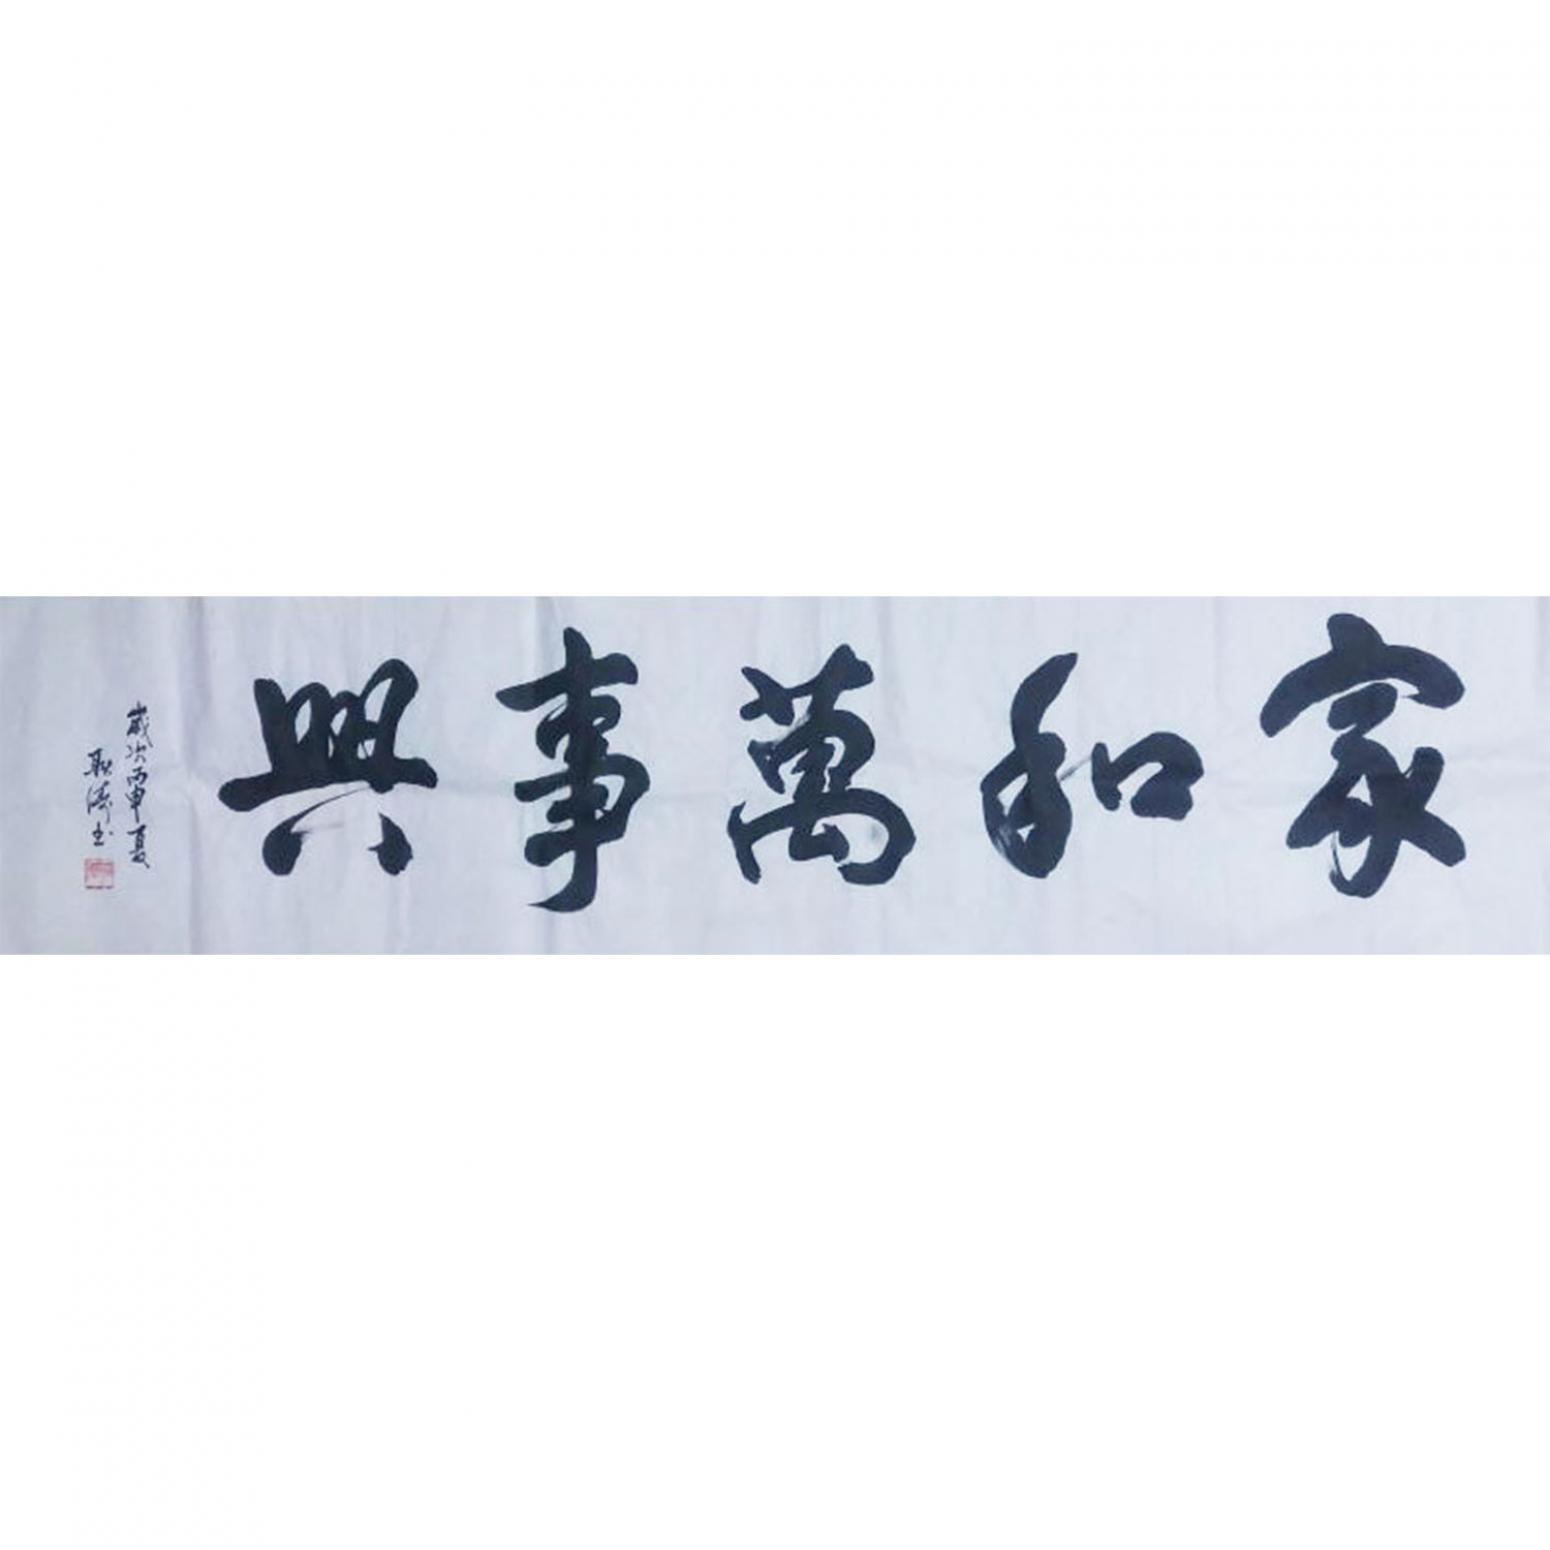 家和萬事興
歲次丙申夏
耿濤书